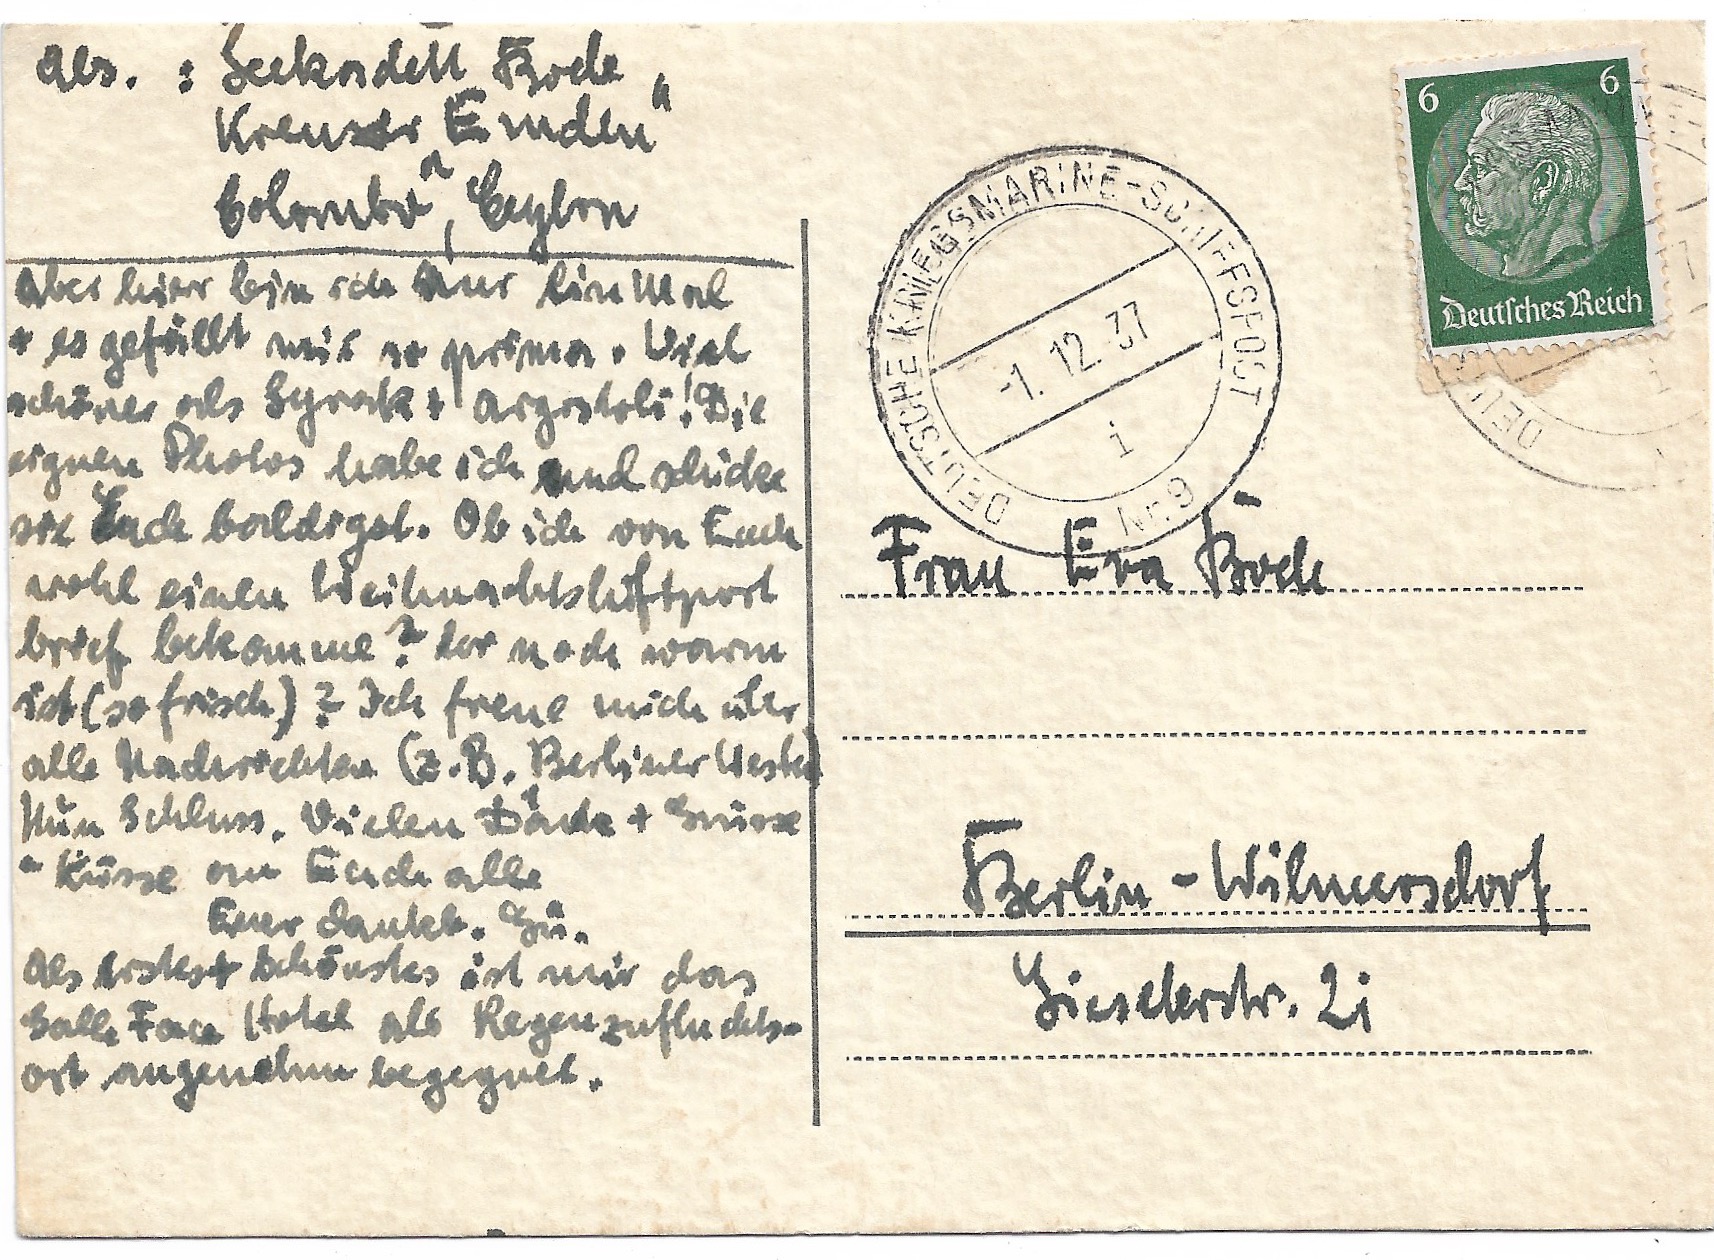 Abs. : Seekadett Bode
Kreuzer "Emden"
Colombo, Ceylon
Aber hier bin ich nur einmal
+ es gefällt mir so prima. Viel
schöner als Syrak + Argostoli! Die
eignen Photos habe ich und schicke
sie Euch baldigst. Ob ich von Euch
wohl einen Weihnachtsluftpost
brief bekomme? der noch warm
ist (so frisch)? Ich freue mich über
alle Nachrichten (z.B. Berliner Westen)
Nun Schluss. Vielen Dank + Grüsse
+ Küsse an Euch alle
Euer dankb. Gü.
Als erstes + schönstes ist mir das
Galle Face Hotel als Regenzufluchts-
ort angenehm begegnet.
DEUTSCHE KRIEGSMARINE-SCHIFFSPOST
-1. 12. 37
i
No 9
6 6
Deutsches Reich
DEU
i
Frau Eva Bode
Berlin-Wilmersdorf
Gieselerstr. 21